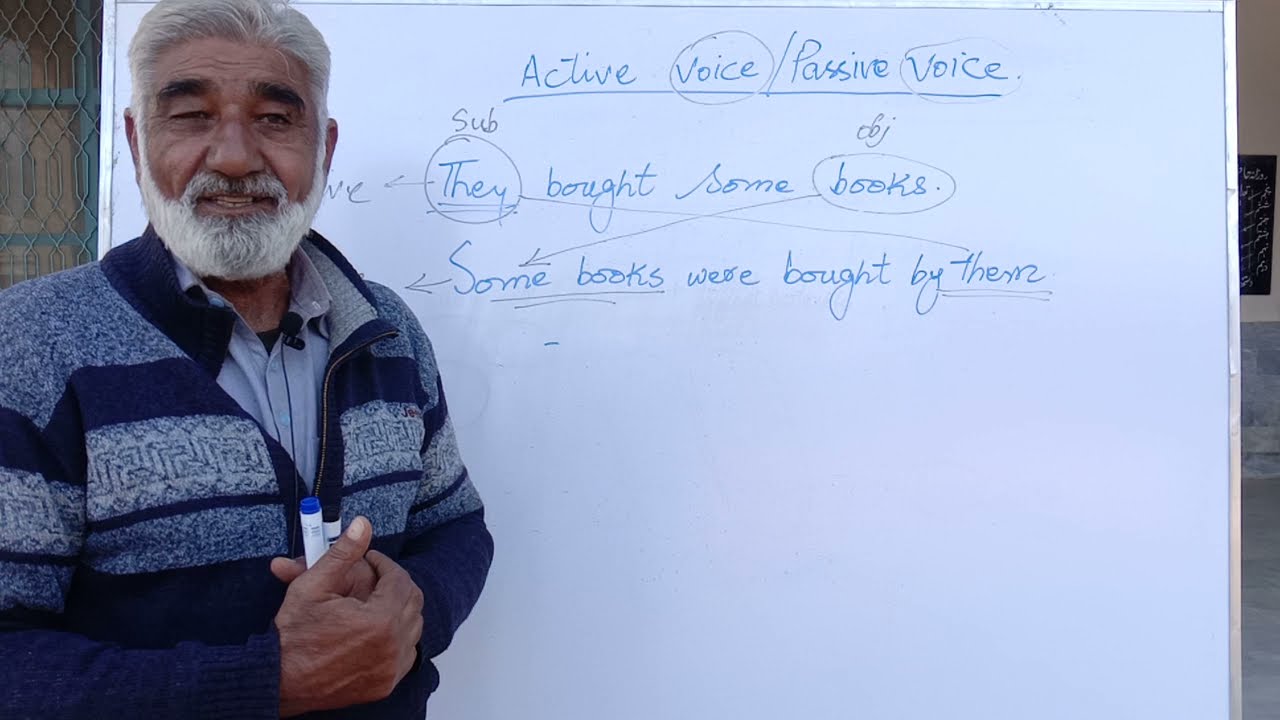 Active Voice / Passive Voice.
Sub obj
They bought some books.
Some books were bought by them.